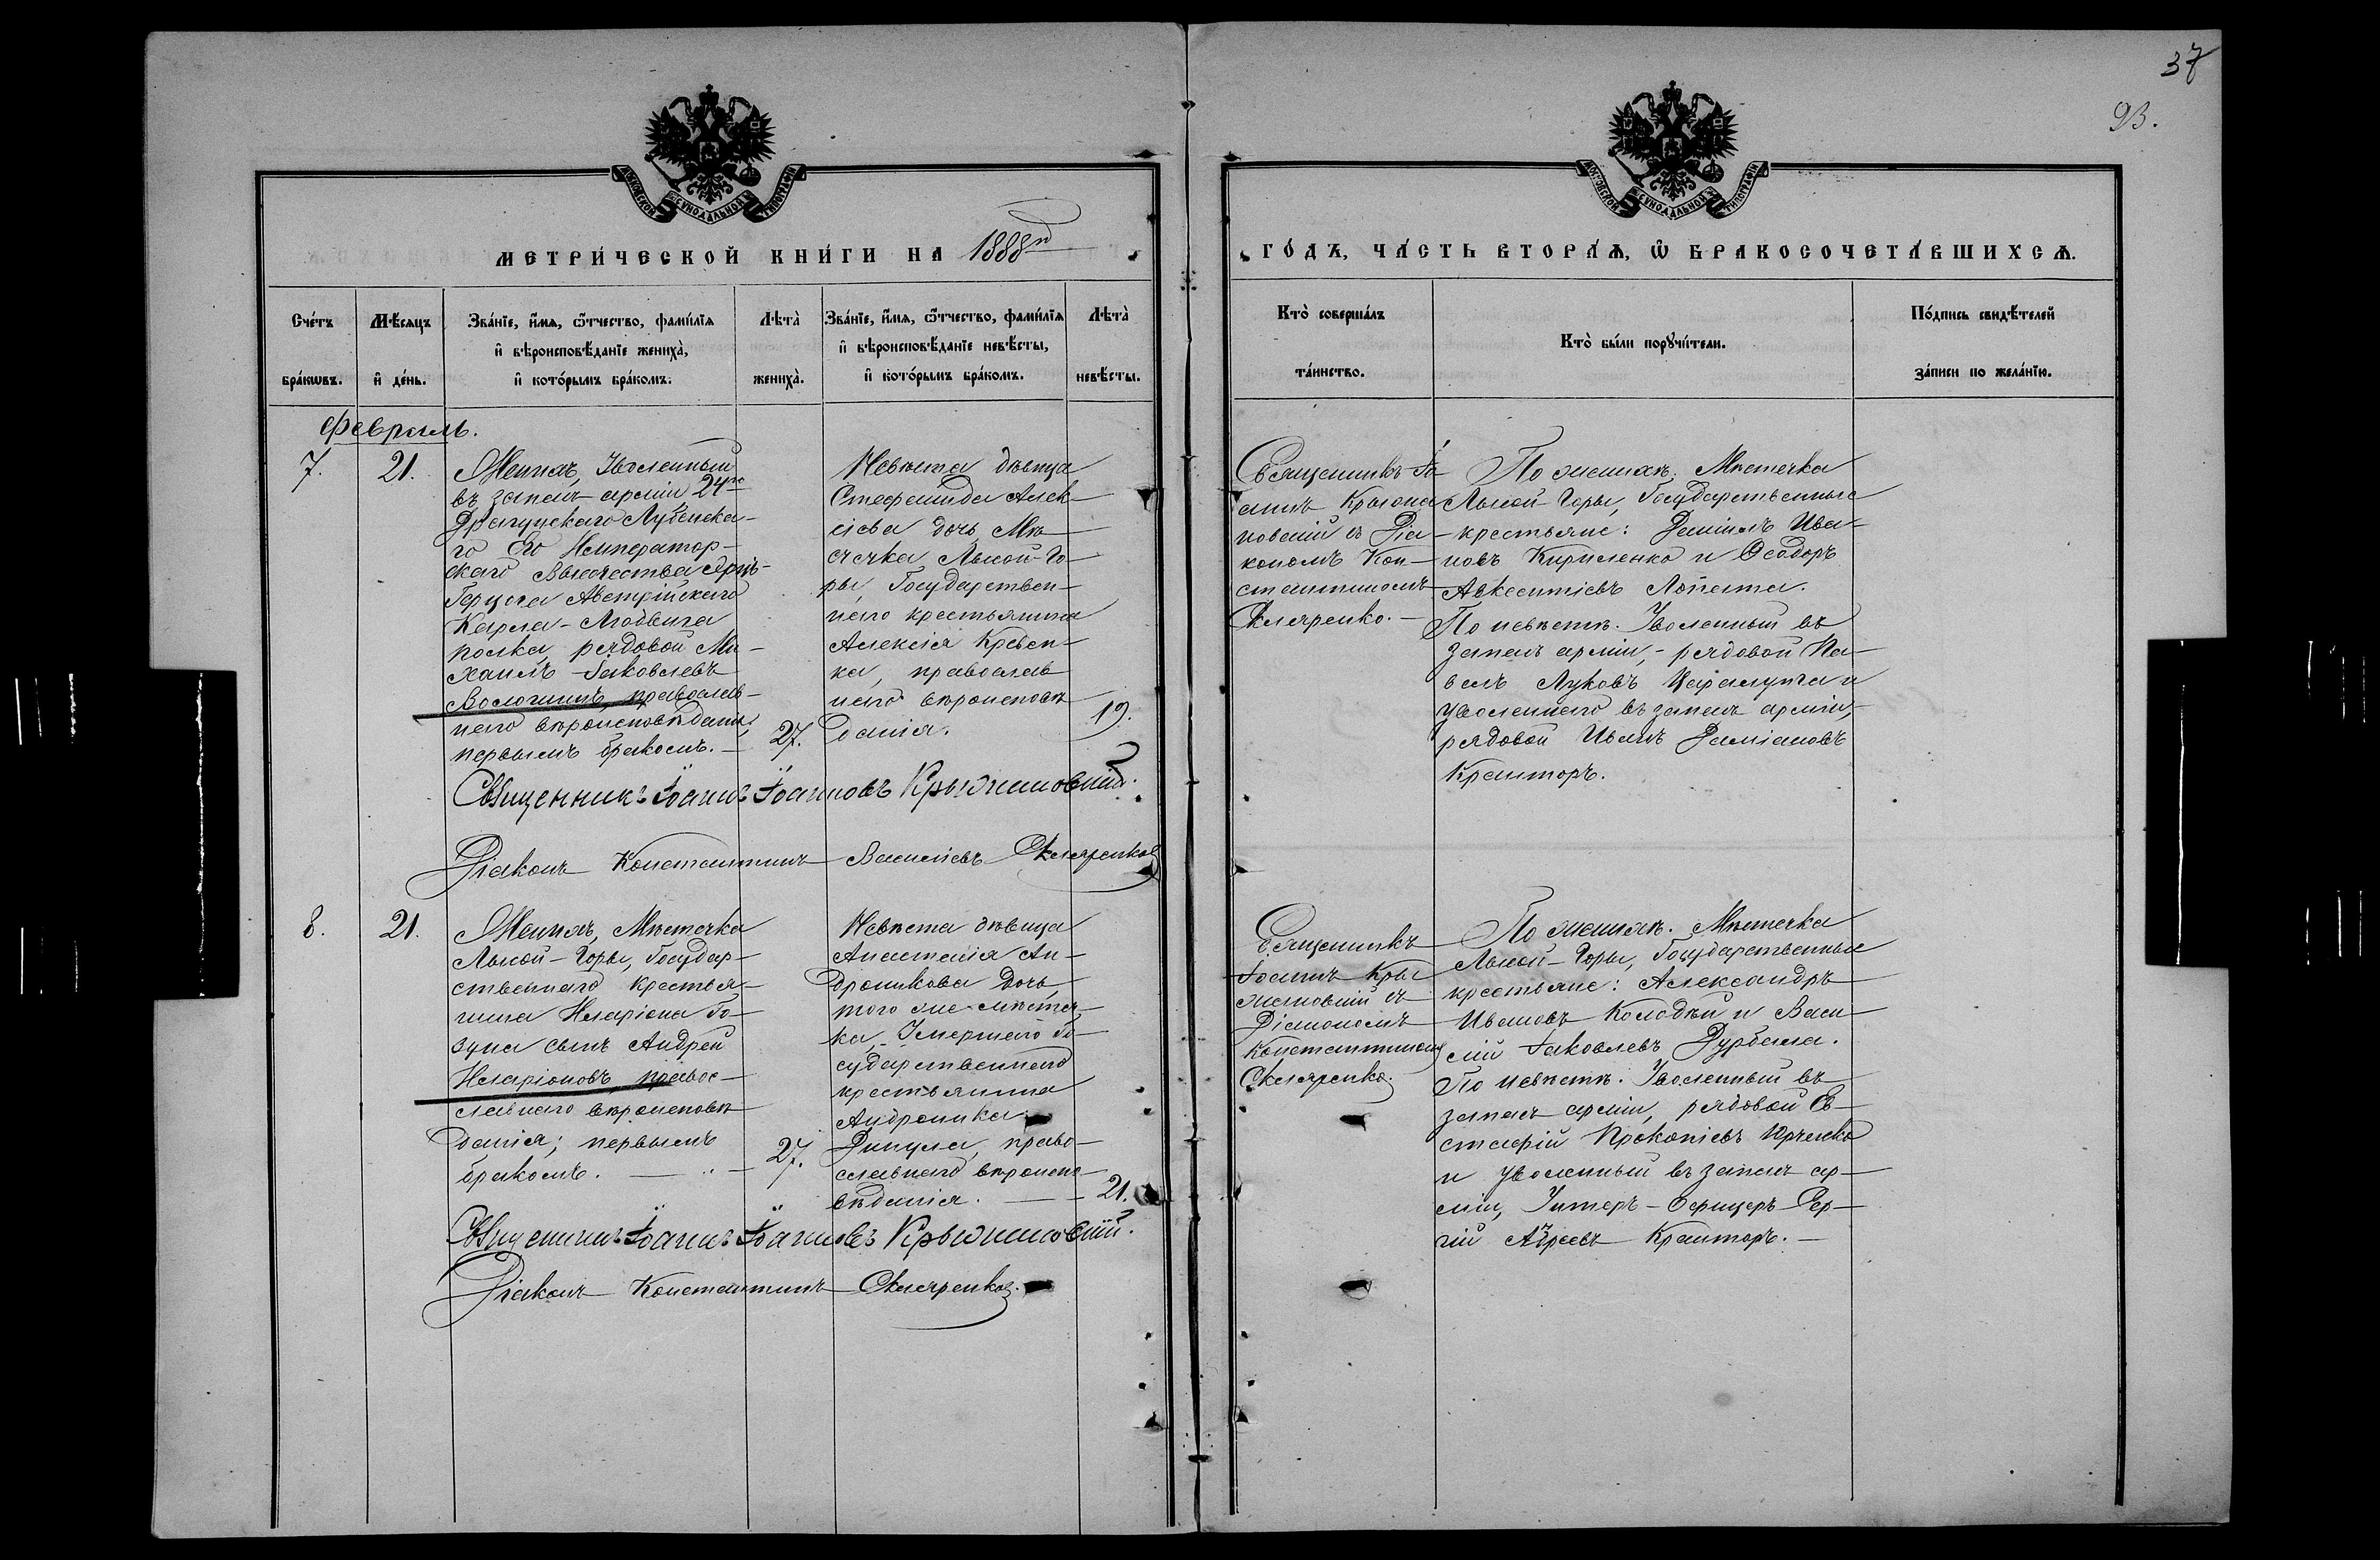 37
93.
МОСКОВСКОЙ СѴНОДАЛЬНОЙ ТИПОГРАФІИ
МОСКОВСКОЙ СѴНОДАЛЬНОЙ ТИПОГРАФІИ
МЕТРИ́ЧЕСКОЙ КНИ́ГИ НА 1888й
ГО́ДЪ, ЧА́СТЬ ВТОРА́Ѧ, Ѡ҆ БРАКОСОЧЕТА́ВШИХСѦ.
Сче́тъ бра́кѡвъ.
Мѣ́сяцъ и҆ де́нь.
Зва́нїе, и҆́мѧ, ѻ҆́тчество, фами́лїѧ
и҆ вѣроисповѣ́данїе жениха̀,
и҆ кото́рымъ бра́комъ.
Лѣта̀ жениха̀.
Зва́нїе, и҆́мѧ, ѻ҆́тчество, фами́лїѧ
и҆ вѣроисповѣ́данїе невѣ́сты,
и҆ кото́рымъ бра́комъ.
Лѣта̀ невѣ́сты.
Кто̀ соверша́лъ та́инство.
Кто̀ бы́ли порꙋчи́тели.
По́дпись свидѣ́телей за́писи по жела́нїю.
Февраль.
7.
21.
Женихъ, Уволенный
въ запасъ арміи 24го
Драгунскаго Лубенска-
го Его Император-
скаго Высочества Эрцъ-
Герцога Австрійскаго
Карла-Людвига
полка, рядовой Ми-
хаилъ Іаковлевъ
Вологинъ, православ-
наго вѣроисповѣданія,
первымъ бракомъ. — 27.
Невѣста дѣвица
Стефанида Алек-
сіева дочь Мѣ-
стечка Лысой-Го-
ры, Государствен-
наго крестьянина
Алексія Кревен-
ка, православ
наго вѣроисповѣ
данія. 19.
Священникъ Іо-
аннъ Крыжа
новскій съ Діа-
кономъ Кон-
стантиномъ
Скляренко.
По женихѣ. Мѣстечка
Лысой-Горы, Государственные
крестьяне: Даніилъ Ива-
новъ Кириленко и Ѳеодоръ
Авксентіевъ Лопата.
По невѣстѣ. Уволенный въ
запасъ арміи, - рядовой Па-
велъ Луковъ и
уволеннаго въ запасъ арміи, -
рядовой Иванъ Даміановъ
Кранторъ.
Священникъ Іоаннъ Іоанновъ Крыжановскій.
Діаконъ Константинъ Василіевъ Скляренко
8.
21.
Женихъ, Мѣстечка
Лысой-Горы, Государ-
ственнаго крестья-
нина Иларіона Го-
зуна сынъ Андрей
Иларіоновъ, право-
славнаго вѣроисповѣ
данія; первымъ
бракомъ. — 27.
Невѣста дѣвица
Анастасія Ан-
дроникова дочь
того же мѣстеч-
ка, Умершаго Го-
сударственнаго
крестьянина
Андроника
православнаго вѣроиспо-
вѣданія. — 21.
Священникъ
Іоаннъ Кры
жановскій съ
Діакономъ
Константиномъ
Скляренко.
По женихѣ. Мѣстечка
Лысой-Горы, Государственные
крестьяне: Александръ
Ивановъ Колодѣй и Васи-
лій Іаковлевъ Дурбала.
По невѣстѣ. Уволенный въ
запасъ арміи, рядовой Ев-
стафій Прокопіевъ Юрченко
и уволенный въ запасъ ар-
міи, Унтеръ-офицеръ Сер-
гій Кранторъ. —
Священникъ Іоаннъ Іоанновъ Крыжановскій.
Діаконъ Константинъ Скляренко.